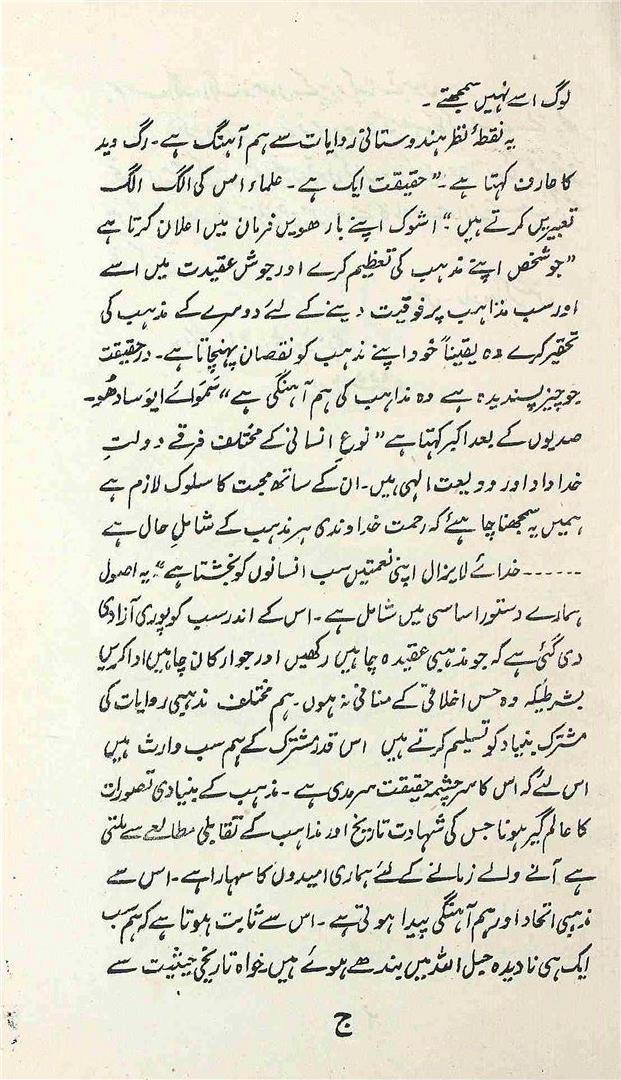 لوگ اسے نہیں سمجھتے ۔
یہ نقطۂ نظر ہندوستانی روایات سے ہم آہنگ ہے ۔ رگ وید
کا عارف کہتا ہے ۔ “ حقیقت ایک ہے ۔ علماء اس کی الگ الگ
تعبیریں کرتے ہیں “۔ اشوک اپنے بارھویں فرمان میں اعلان کرتا ہے
“جو شخص اپنے مذہب کی تعظیم کرے اور جوش عقیدت میں اسے
اور سب مذاہب پر فوقیت دینے کے لئے دوسرے کے مذہب کی
تحقیر کرے وہ یقیناً خود اپنے مذہب کو نقصان پہنچاتا ہے ۔ درحقیقت
جو چیز پسندیدہ ہے وہ مذاہب کی ہم آہنگی ہے “ سَمَوائے ایوَ سادھُو ۔
صدیوں کے بعد اکبر کہتا ہے “ نوعِ انسانی کے مختلف فرقے دولتِ
خداداد اور ودیعت الٰہی ہیں ۔ ان کے ساتھ محبت کا سلوک لازم ہے
ہمیں یہ سمجھنا چاہئے کہ رحمت خداوندی ہر مذہب کے شاملِ حال ہے
------ خدائے لایزال اپنی نعمتیں سب انسانوں کو بخشتا ہے “۔ یہ اصول
ہمارے دستور اساسی میں شامل ہے ۔ اس کے اندر سب کو پوری آزادی
دی گئی ہے کہ جو مذہبی عقیدہ چاہیں رکھیں اور جو ارکان چاہیں ادا کریں
بشرطیکہ وہ حس اخلاقی کے منافی نہ ہوں ۔ ہم مختلف مذہبی روایات کی
مشترک بنیاد کو تسلیم کرتے ہیں اس قدر مشترک کے ہم سب وارث ہیں
اس لئے کہ اس کا سرچشمہ حقیقت سرمدی ہے ۔ مذہب کے بنیادی تصورات
کا عالم گیر ہونا جس کی شہادت تاریخ اور مذاہب کے تقابلی مطالعے سے ملتی
ہے آنے والے زمانے کے لئے ہماری امیدوں کا سہارا ہے ۔ اس سے
مذہبی اتحاد اور ہم آہنگی پیدا ہوتی ہے ۔ اس سے ثابت ہوتا ہے کہ ہم سب
ایک ہی نادیدہ حبل اللہ میں بندھے ہوئے ہیں ۔ خواہ تاریخی حیثیت سے
ج